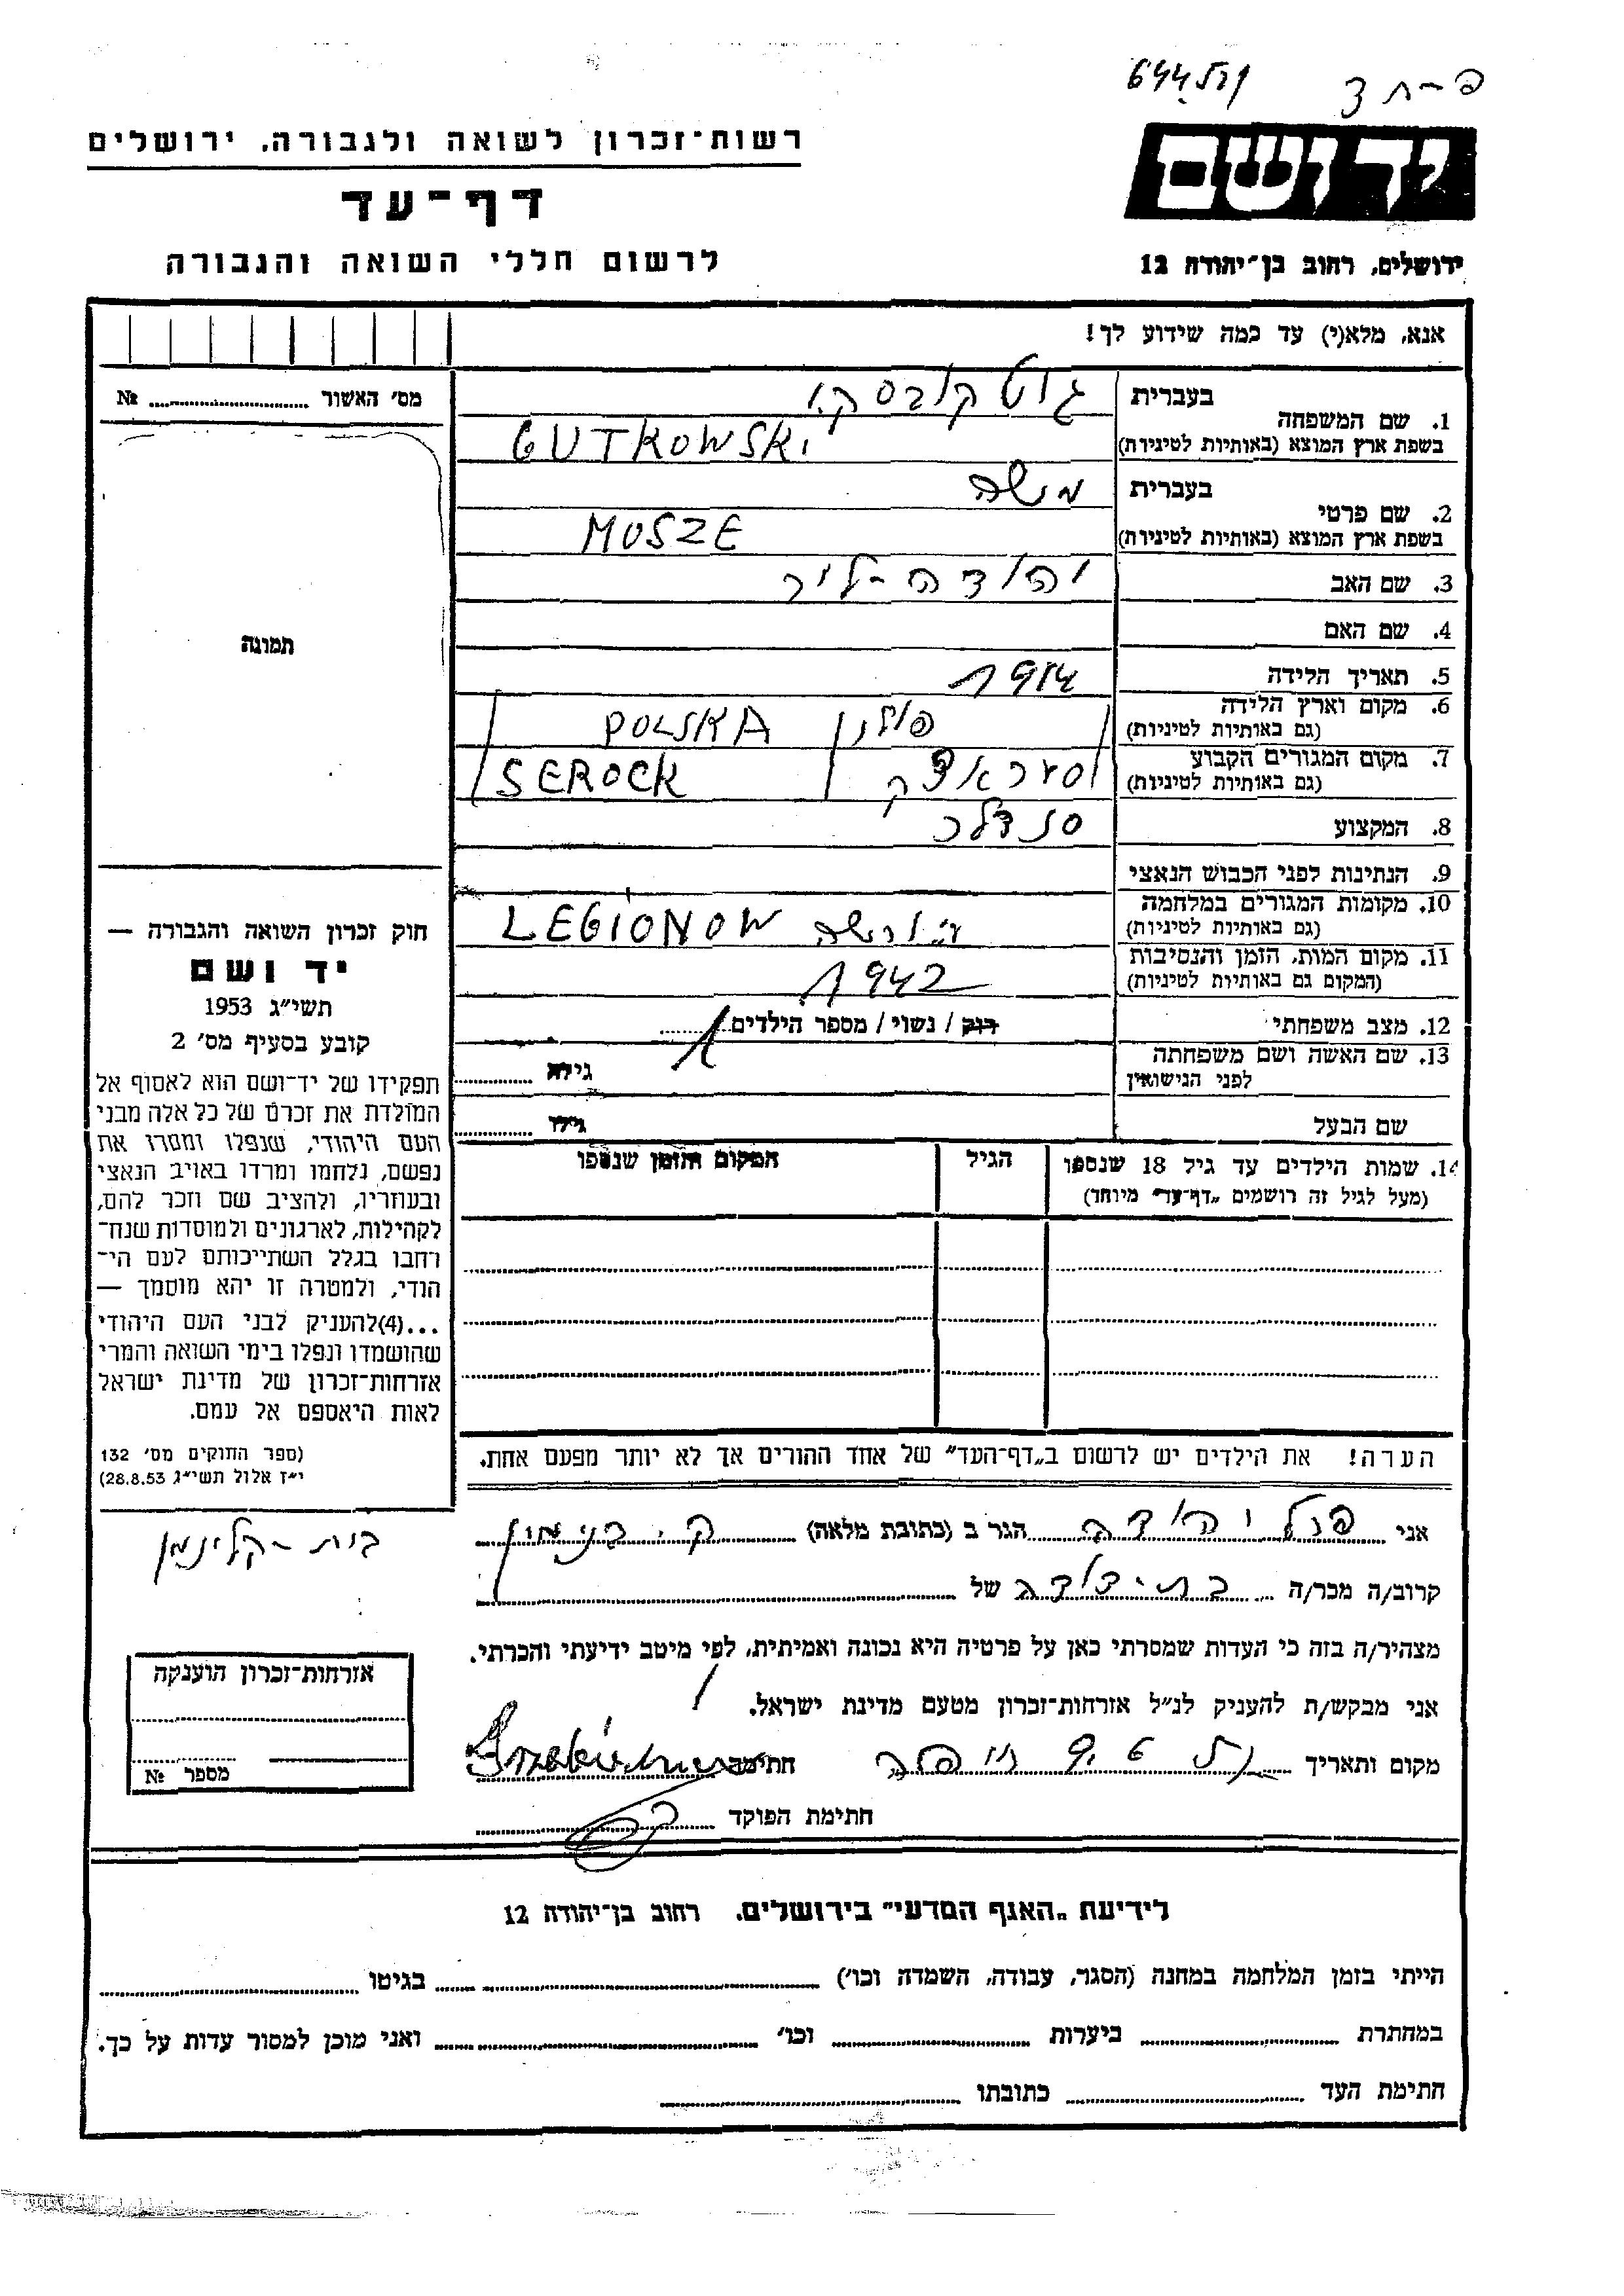 644
רשות־זכרון לשואה ולגבורה, ירושלים
יד ושם
דף־עד
לרשום חללי השואה והגבורה
ירושלים, רחוב בן־יהודה 12
אנא, מלא(י) עד כמה שידוע לך!
מס׳ האשור № 
בעברית
1. שם המשפחה
בשפת ארץ המוצא (באותיות לטיניות)
גוטקובסקי
GUTKOWSKI
בעברית
2. שם פרטי
בשפת ארץ המוצא (באותיות לטיניות)
משה
MOSZE
3. שם האב יהודה-ליב
4. שם האם
5. תאריך הלידה 1914
6. מקום וארץ הלידה
(גם באותיות לטיניות)
פולין POLSKA
7. מקום המגורים הקבוע
(גם באותיות לטיניות)
סעראצק SEROCK
8. המקצוע סנדלר
9. הנתינות לפני הכבוש הנאצי
10. מקומות המגורים במלחמה
(גם באותיות לטיניות)
LEGIONOW
11. מקום המות, הזמן והנסיבות
(המקום גם באותיות לטיניות)
1942
12. מצב משפחתי רוק / נשוי / מספר הילדים 1
13. שם האשה ושם משפחתה
לפני הנישואין
גילה
שם הבעל גילו
14. שמות הילדים עד גיל 18 שנספו
(מעל לגיל זה רושמים „דף־עד” מיוחד)
הגיל
המקום והזמן שנספו
הערה! את הילדים יש לרשום ב„דף־העד” של אחד ההורים אך לא יותר מפעם אחת.
תמונה
חוק זכרון השואה והגבורה —
יד ושם
תשי״ג 1953
קובע בסעיף מס׳ 2
תפקידו של יד־ושם הוא לאסוף אל
המולדת את זכרם של כל אלה מבני
העם היהודי, שנפלו ומסרו את
נפשם, נלחמו ומרדו באויב הנאצי
ובעוזריו, ולהציב שם וזכר להם,
לקהילות, לארגונים ולמוסדות שנח־
רחבו בגלל השתייכותם לעם הי־
הודי, ולמטרה זו יהא מוסמך —
...(4)להעניק לבני העם היהודי
שהושמדו ונפלו בימי השואה והמרי
אזרחות־זכרון של מדינת ישראל
לאות היאספם אל עמם.
(ספר החוקים מס׳ 132
י״ז אלול תשי״ג 28.8.53)
אני יהודה הגר ב (כתובת מלאה) ק. בנימין
בית-קלינמן
קרוב/ה מכר/ה בת-דודה של
מצהיר/ה בזה כי העדות שמסרתי כאן על פרטיה היא נכונה ואמיתית, לפי מיטב ידיעתי והכרתי.
אני מבקש/ת להעניק לנ״ל אזרחות־זכרון מטעם מדינת ישראל.
מקום ותאריך חתימה
חתימת הפוקד
אזרחות־זכרון הוענקה
מספר №
לידיעת „האגף המדעי” בירושלים, רחוב בן־יהודה 12
הייתי בזמן המלחמה במחנה (הסגר, עבודה, השמדה וכו׳) בגיטו
במחתרת ביערות וכו׳ ואני מוכן למסור עדות על כך.
חתימת העד כתובתו